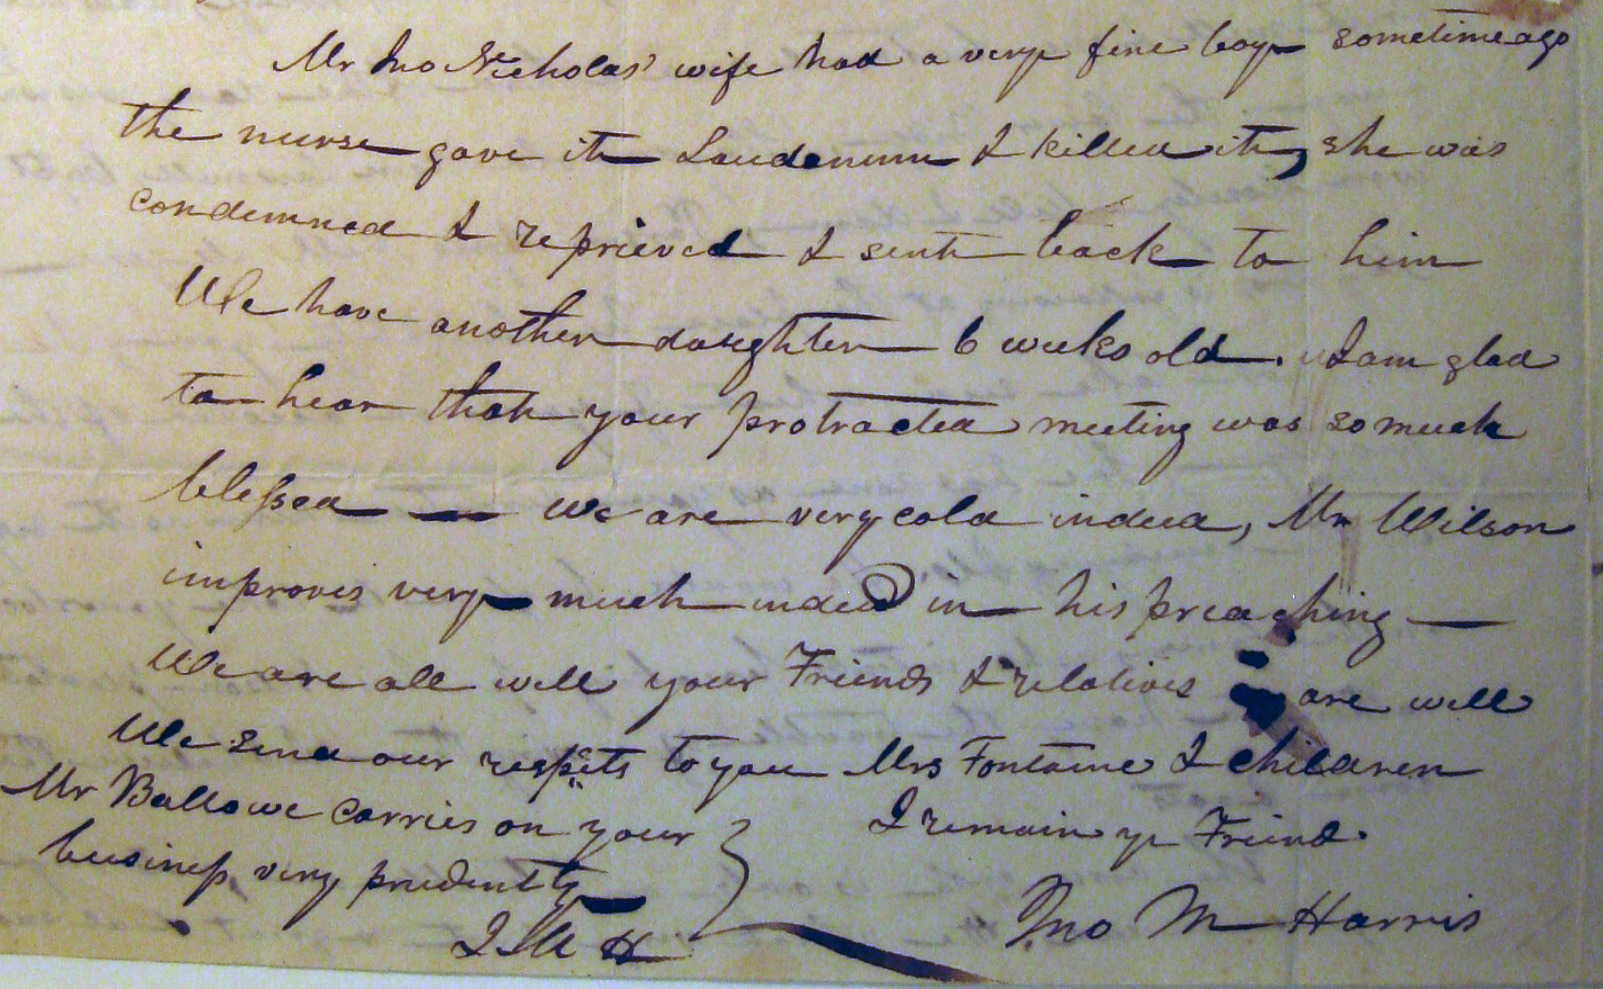 Mr Jno Nicholas' wife had a very fine boy sometime ago
the nurse gave it Laudenum & killed it, she was
condemned & reprieved & sent back to him
We have another daughter 6 weeks old. I am glad
to hear that your protracted meeting was so much
blessed — We are very cold indeed, Mr Wilson
improves very much indeed in his preaching —
We are all well your Friends & relatives are well
We send our respects to you Mrs Fontaine & children
Mr Ballowe carries on your
business very prudently
J M H
I remain yr Friend
Jno M Harris